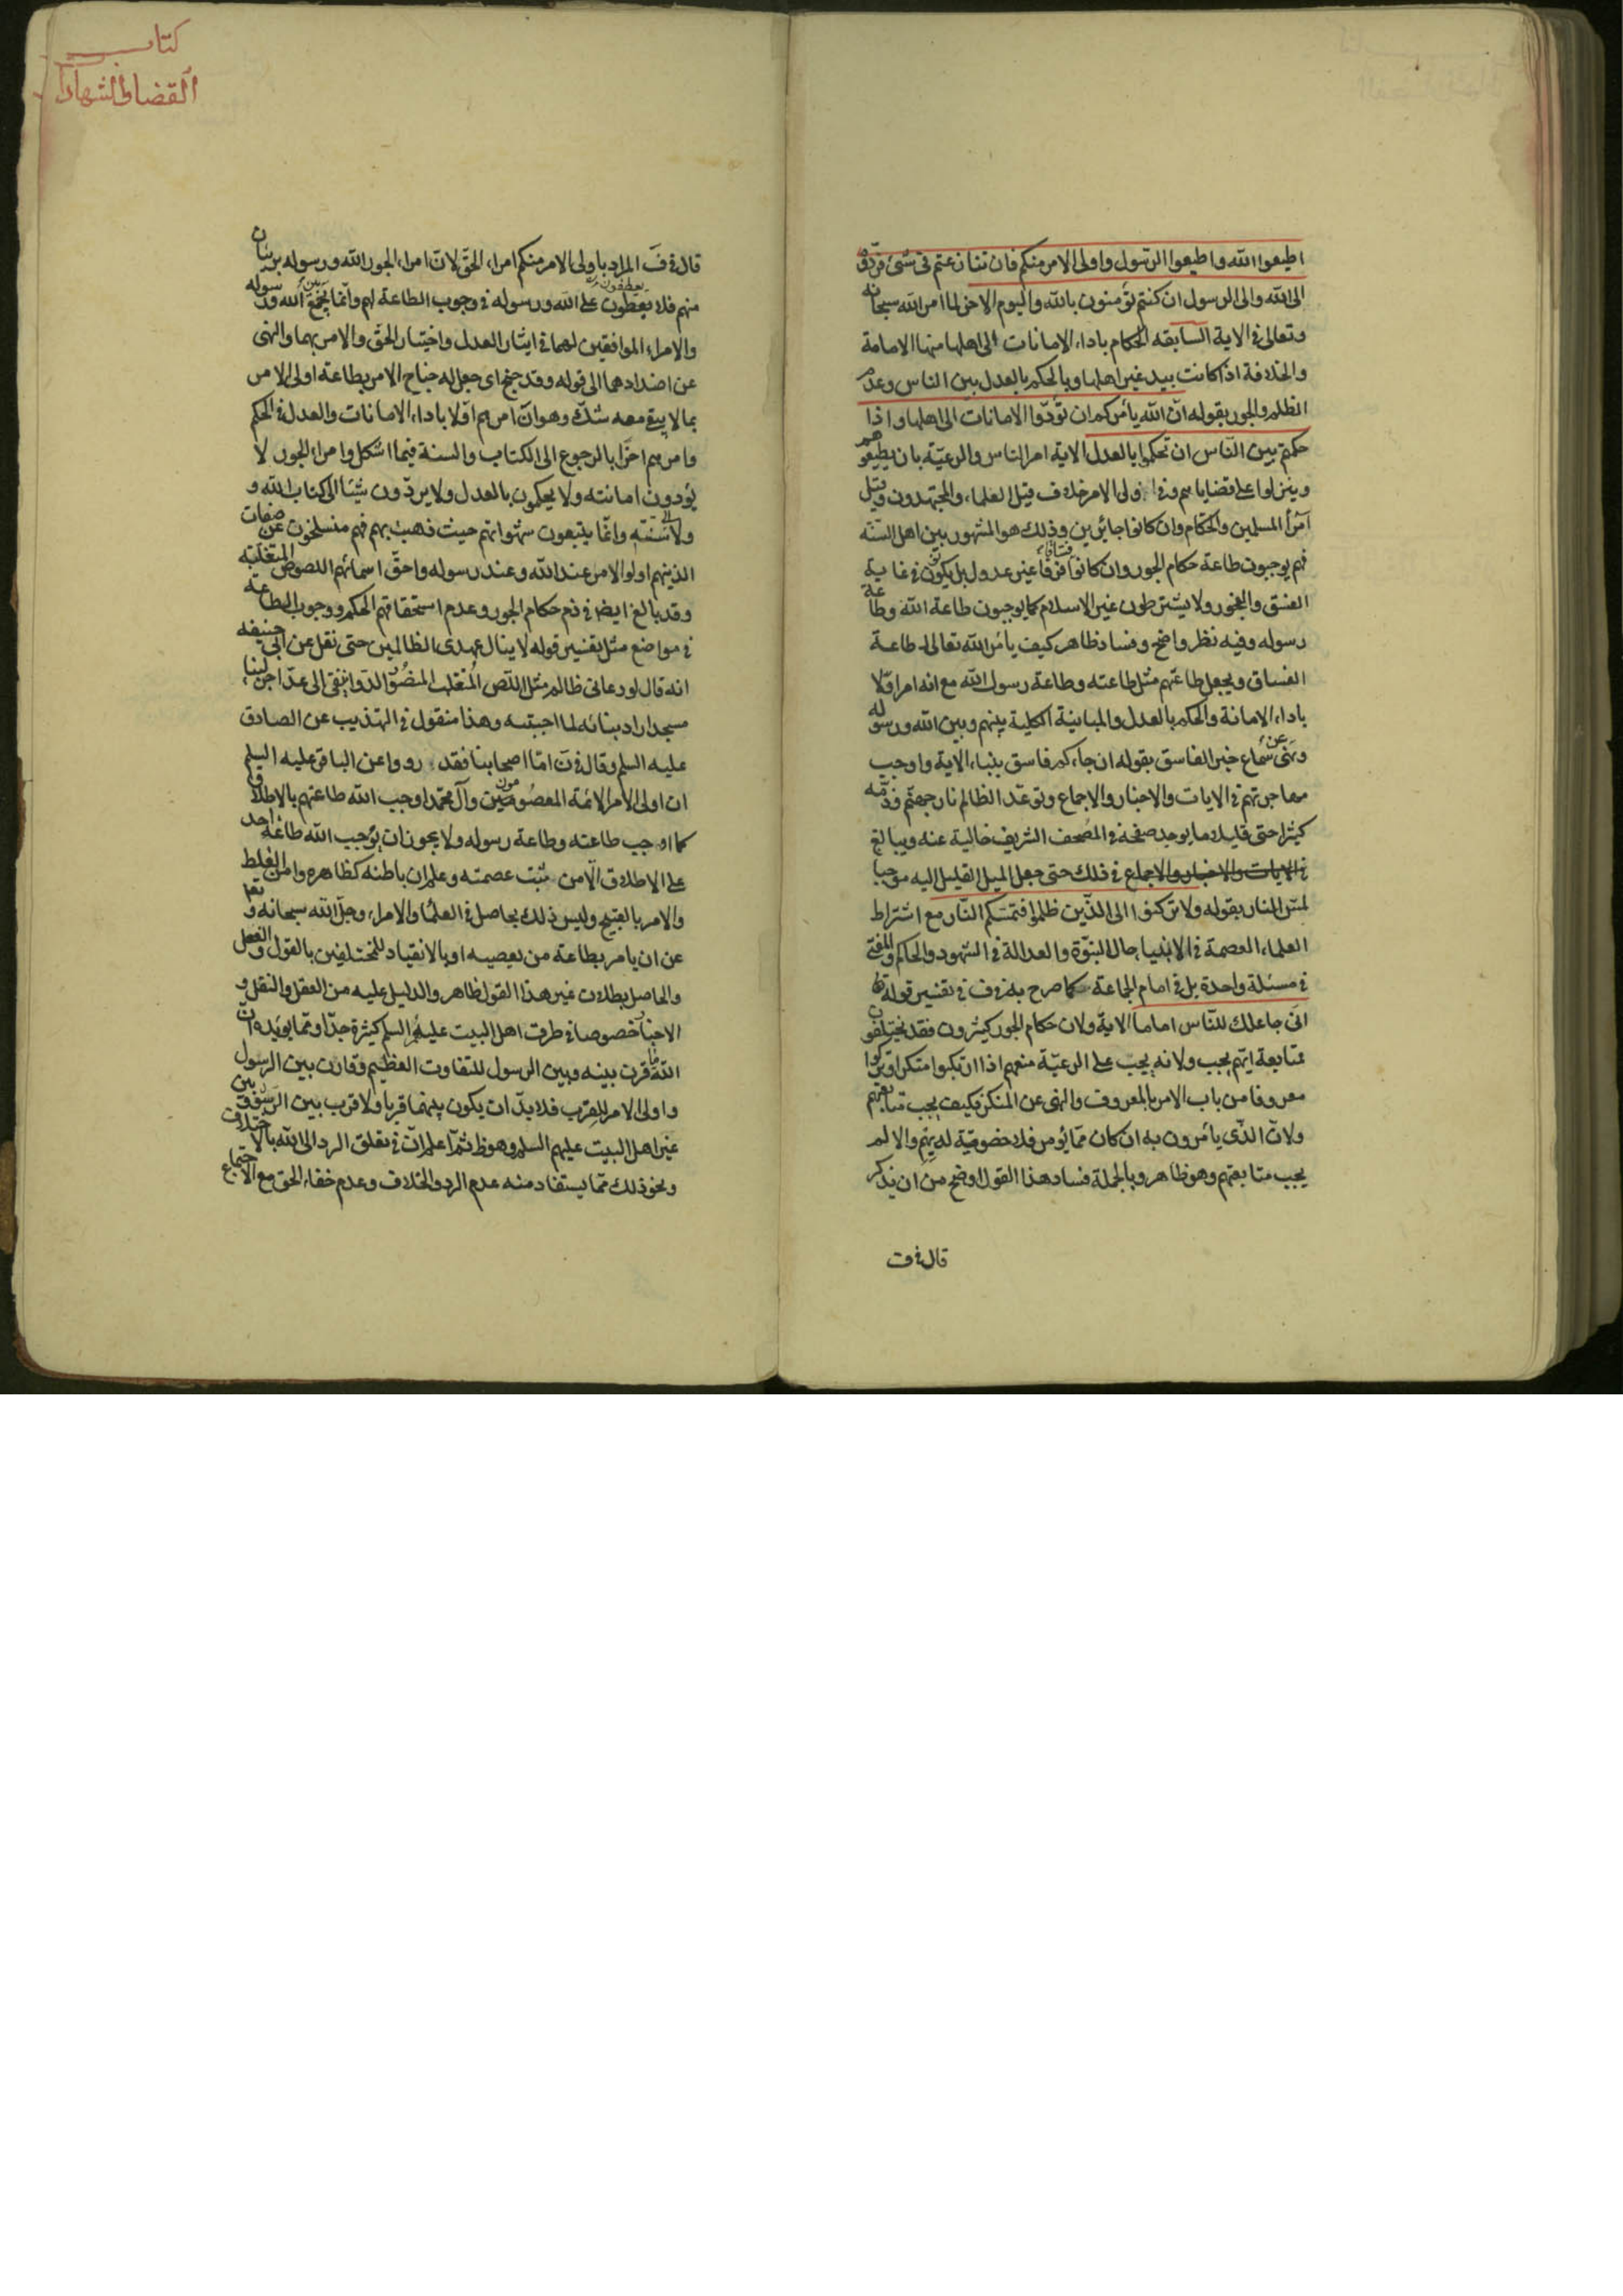 اطيعوا الله واطيعوا الرسول واولى الامر منكم فان تنازعتم فى شئ فردوه
الى الله والى الرسول ان كنتم تؤمنون بالله واليوم الاخر لما امر الله سبحانه
وتعالى فى الاية السابقه الحكام باداء الامانات الى اهلها منها الامامة
والخلافة اذا كانت بيد غير اهلها وبالحكم بالعدل بين الناس وعدم
الظلم والجور بقوله ان الله يأمركم ان تؤدوا الامانات الى اهلها واذا
حكمتم بين الناس ان تحكموا بالعدل الاية امر الناس والرعية بان يطيعوهم
وينزلوا على قضاياهم وفى اولى الامر خلاف قيل العلماء والمجتهدون وقيل
امرأ المسلمين والحكام وان كانوا جائرين وذلك هو المشهور بين اهل السنه
فهم يوجبون طاعة حكام الجور وان كانوا فساقا غير عدول بل يكون فى غاية
الفسق والفجور ولا يشترطون غير الاسلام كما يوجبون طاعة الله وطاعة
رسوله وفيه نظر واضح وفساد ظاهر كيف يأمر الله تعالى طاعة
الفساق ويجعل طاعتهم مثل طاعته وطاعة رسول الله مع انه امر اولا
باداء الامانة والحكم بالعدل والمباينة الكلية بينهم وبين الله ورسوله
ونهى عن سماع خبر الفاسق بقوله ان جاءكم فاسق بنباء الاية واوجب
مهاجرتهم فى الايات والاخبار والاجماع وتوعد الظالم نار جهنم وذمه
كثيرا حتى قليلا ما يوجد صفحة فى المصحف الشريف خالية عنه ويبالغ
فى الايات والاخبار والاجماع فى ذلك حتى جعل الميل القليل اليه موجبا
لمس النار بقوله ولا تركنوا الى الذين ظلموا فتمسكم النار مع اشتراط
العلماء العصمة فى الانبياء حال النبوة والعدالة فى الشهود والحاكم والمفتى
فى مسئلة واحدة بل فى امام الجماعة كما صرح به فى ف فى تفسير قوله تعا
انى جاعلك للناس اماما الاية ولان حكام الجور كثيرون فقد يختلفون
متابعة ايهم يجب ولانه يجب على الرعية منعهم اذا ارتكبوا منكرا وتركوا
معروفا من باب الامر بالمعروف والنهى عن المنكر فكيف يجب متابعتهم
ولان الذى يأمرون به ان كان مما يؤمر فلا خصوصية له بهم والا لم
يجب متابعتهم وهو ظاهر وبالجملة فساد هذا القول اوضح من ان يذكر
قال فى ف
كتاب
القضا والشهادا
قال فى ف المراد باولى الامر منكم امراء الحق لان امراء الجور الله ورسوله بريئان
منهم فلا يعطفون على الله ورسوله فى وجوب الطاعة لهم وانما يجمع بين الله ورسوله
والامراء الموافقين لهما فى ايثار العدل واختيار الحق والامر بهما والنهى
عن اضدادهما الى قوله وقد جنح اى جعل له جناح الامر بطاعة اولى الامر
بما لا يبقى معه شك وهو ان امرهم اولا باداء الامانات والعدل فى الحكم
وامرهم اخرا بالرجوع الى الكتاب والسنة فيما اشكل وامراء الجور لا
يؤدون امانته ولا يحكمون بالعدل ولا يردون شيئا الى كتاب الله و
ولا الى سنته وانما يتبعون شهواتهم حيث ذهبت بهم فهم منسلخون عن صفات
الذينهم اولوا الامر عند الله وعند رسوله واحق اسمائهم اللصوص المتغلبه
وقد بالغ ايضا فى ذم حكام الجور وعدم استحقاقهم الحكم ووجوب الطاعة
فى مواضع مثل تفسير قوله لا ينال عهدى الظالمين حتى نقل عن ابى حنيفه
انه قال لو دعانى ظالم مثل اللص المتغلب الدوانيقى الى عد اجر لبناء
مسجد اراد بنائه لما اجبته وهذا منقول فى التهذيب عن الصادق
عليه السلم وقال فى ن اما اصحابنا فقد رووا عن الباقر عليه السلم
ان اولى الامر الائمة المعصومون من آل محمد اوجب الله طاعتهم بالاطلاق
كما اوجب طاعته وطاعة رسوله ولا يجوز ان يوجب الله طاعة احد
على الاطلاق الا من ثبت عصمته وعلم ان باطنه كظاهره وامن الغلط
والامر بالقبيح وليس ذلك بحاصل فى العلماء والامراء وجل الله سبحانه وتعا
عن ان يامر بطاعة من يعصيه او بالانقياد للمختلفين بالقول والفعل
والحاصل بطلان غير هذا القول ظاهر والدليل عليه من العقل والنقل و
الاخبار خصوصا فى طرق اهل البيت عليهم السلم كثيرة جدا ومما يويده ان
الله ما قرن بينه وبين الرسول للتفاوت العظيم وقارن بين الرسول
واولى الامر للقرب فلا بد ان يكون بينهما قربا ولا قرب بين الرسول وبين
غير اهل البيت عليهم السلم وهو ظ ثم اعلم ان فى تعلق الرد الى الله بالاختلاف
ونحو ذلك مما يستفاد منه عدم الرد والخلاف وعدم خفاء الحق مع الاجتماع